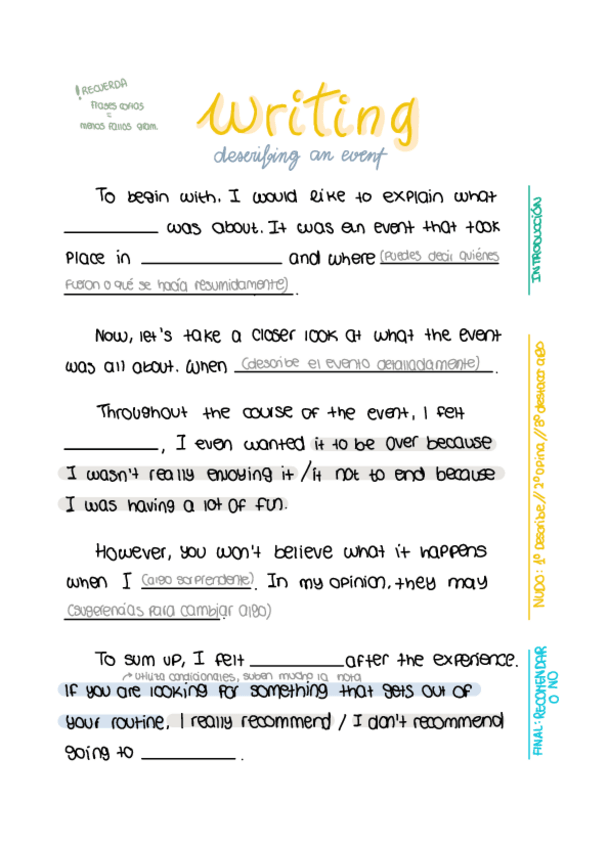 ! RECUERDA
Frases cortas
=
menos fallos gram.
Writing
describing an event
To begin with, I would like to explain what
__________ was about. It was an event that took
place in __________ and where (Puedes decir quiénes
fueron o qué se hacía resumidamente).
INTRODUCCIÓN
Now, let's take a closer look at what the event
was all about. When (describe el evento detalladamente).
Throughout the course of the event, I felt
__________, I even wanted it to be over because
I wasn't really enjoying it / it not to end because
I was having a lot of fun.
However, you won't believe what it happens
when I (algo sorprendente). In my opinion, they may
(sugerencias para cambiar algo)
NUDO: 1º Describe // 2º opina // 3º destacar algo
To sum up, I felt __________ after the experience.
utiliza condicionales, suben mucho la nota
If you are looking for something that gets out of
your routine, I really recommend / I don't recommend
going to __________.
FINAL: RECOMENDAR
O NO